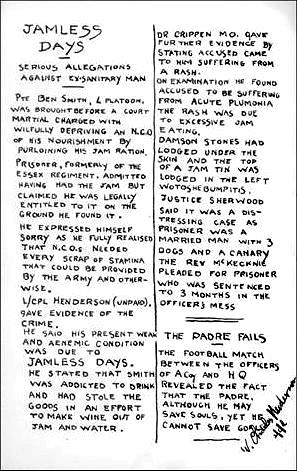 JAMLESS
DAYS
SERIOUS ALLEGATIONS
AGAINST EX-SANITARY MAN
PTE BEN SMITH, L PLATOON,
WAS BROUGHT BEFORE A COURT
MARTIAL CHARGED WITH
WILFULLY DEPRIVING AN N.C.O
OF HIS NOURISHMENT BY
PURLOINING HIS JAM RATION.
PRISONER, FORMERLY OF THE
ESSEX REGIMENT. ADMITTED
HAVING HAD THE JAM BUT
CLAIMED HE WAS LEGALLY
ENTITLED TO IT ON THE
GROUND HE FOUND IT.
HE EXPRESSED HIMSELF
SORRY AS HE FULLY REALISED
THAT N.C.O's NEEDED
EVERY SCRAP OF STAMINA
THAT COULD BE PROVIDED
BY THE ARMY AND OTHER-
WISE.
L/CPL HENDERSON (UNPAID).
GAVE EVIDENCE OF THE
CRIME.
HE SAID HIS PRESENT WEAK
AND AENEMIC CONDITION
WAS DUE TO
JAMLESS DAYS.
HE STATED THAT SMITH
WAS ADDICTED TO DRINK
AND HAD STOLE THE
GOODS IN AN EFFORT
TO MAKE WINE OUT OF
JAM AND WATER.
DR CRIPPEN M.O. GAVE
FURTHER EVIDENCE BY
STATING ACCUSED CAME
TO HIM SUFFERING FROM
A RASH.
ON EXAMINATION HE FOUND
ACCUSED TO BE SUFFERING
FROM ACUTE PLUMONIA.
THE RASH WAS DUE
TO EXCESSIVE JAM
EATING.
DAMSON STONES HAD
LODGED UNDER THE
SKIN AND THE TOP
OF A JAM TIN WAS
LODGED IN THE LEFT
WOTOSHEBUMPITS.
JUSTICE SHERWOOD
SAID IT WAS A DIS-
TRESSING CASE AS
PRISONER WAS A
MARRIED MAN WITH 3
DOGS AND A CANARY
THE REV McKECKNIE
PLEADED FOR PRISONER
WHO WAS SENTENCED
TO 3 MONTHS IN THE
OFFICERS MESS
THE PADRE FAILS
THE FOOTBALL MATCH
BETWEEN THE OFFICERS
OF A Coy AND HQ
REVEALED THE FACT
THAT THE PADRE,
ALTHOUGH HE MAY
SAVE SOULS, YET HE
CANNOT SAVE GOALS
Henderson